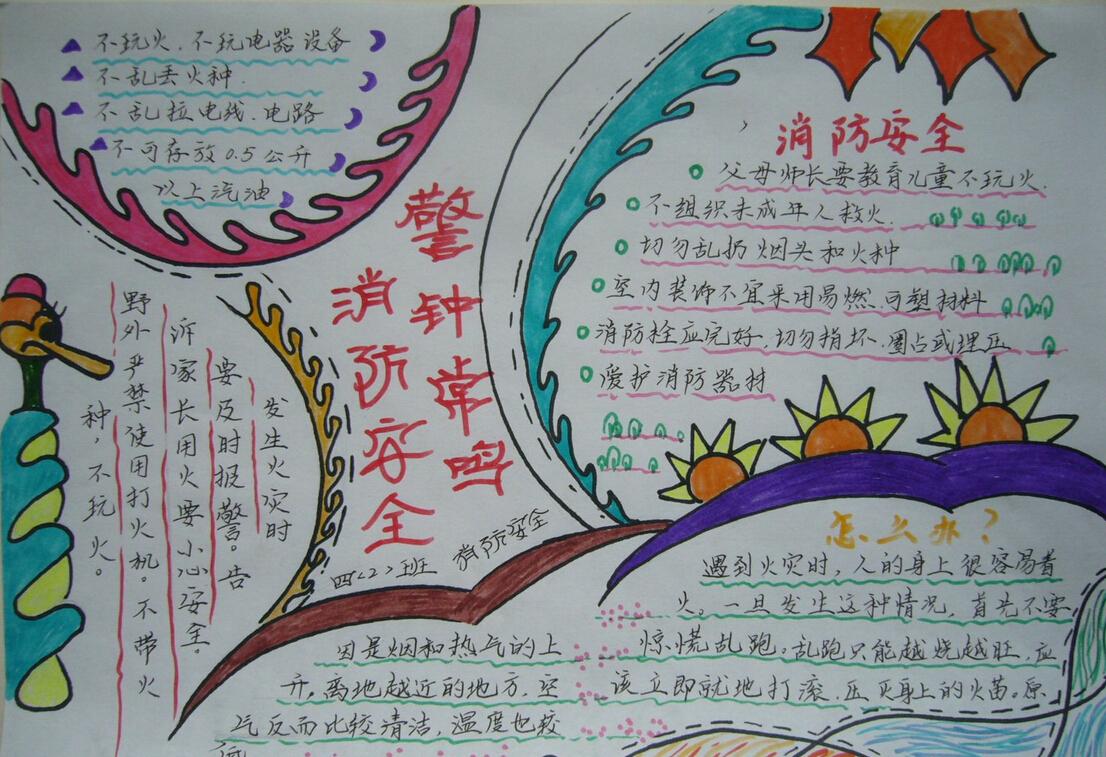 不玩火.不玩电器设备
不乱丢火种.
不乱拉电线.电路
不可存放0.5公升
以上汽油
警钟常鸣
消防安全
四〈2〉班
消防安全
消防安全
父母师长要教育儿童不玩火.
不组织未成年人救火.
切勿乱扔烟头和火种
室内装饰不宜采用易燃.可塑材料
消防栓应完好,切勿损坏.圈占或埋压
爱护消防器材
发生火灾时
要及时报警。告
诉家长用火要小心安全。
野外严禁使用打火机。不带火
种,不玩火。
怎么办?
遇到火灾时,人的身上很容易着
火。一旦发生这种情况,首先不要
惊慌乱跑。乱跑只能越烧越旺,应
该立即就地打滚.压灭身上的火苗。原
因是烟和热气的上
升,离地越近的地方,空
气反而比较清洁,温度也较
低